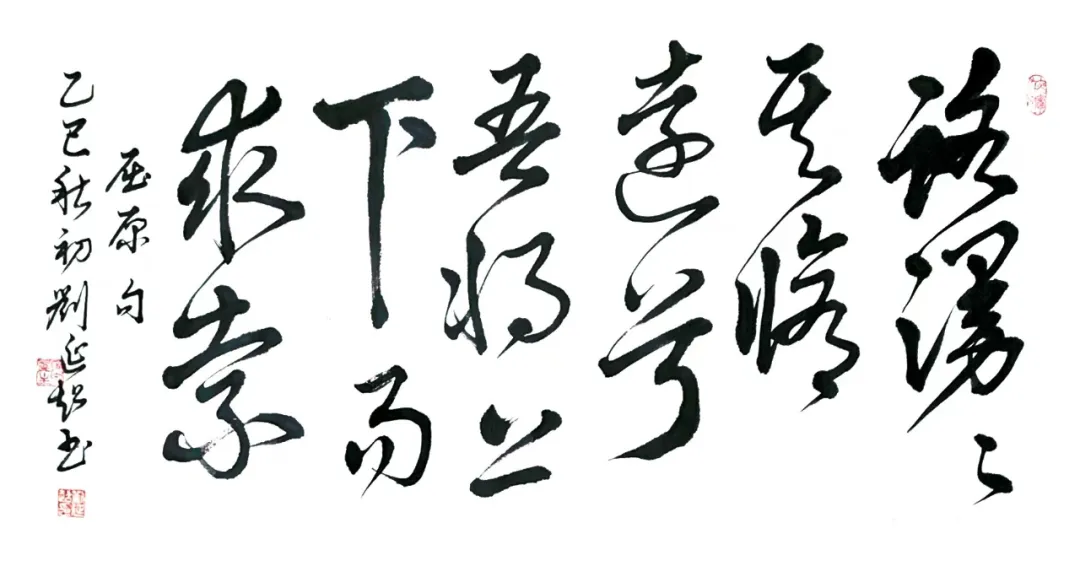 路漫々
其修
遠兮
吾將上
下而
求索
屈原句
乙巳秋初劉延超书